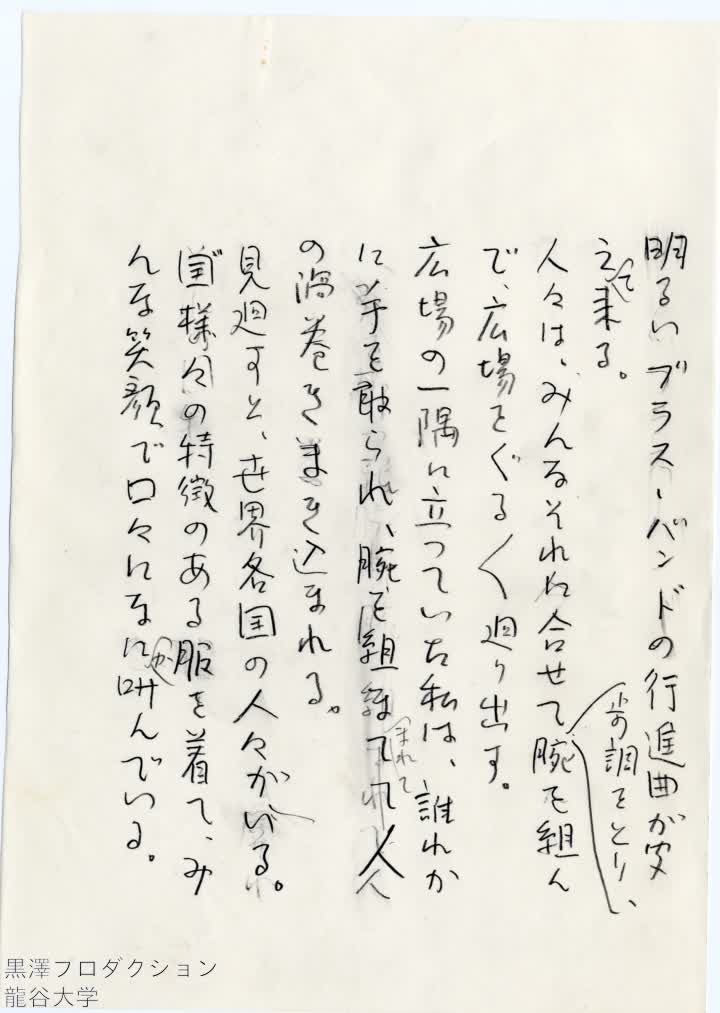 明るいブラス・バンドの行進曲が聞
えて来る。
人々は、みんなそれに合せて歩調をとり、腕を組ん
で、広場をぐる〱廻り出す。
広場の一隅に立っていた私は、誰れか
に手を取られ、腕を組まれて人
の渦巻きにまき込まれる。
見廻すと、世界各国の人々がいる。
国様々の特徴のある服を着て、み
んな笑顔で口々になにか叫んでいる。
黒澤プロダクション
龍谷大学